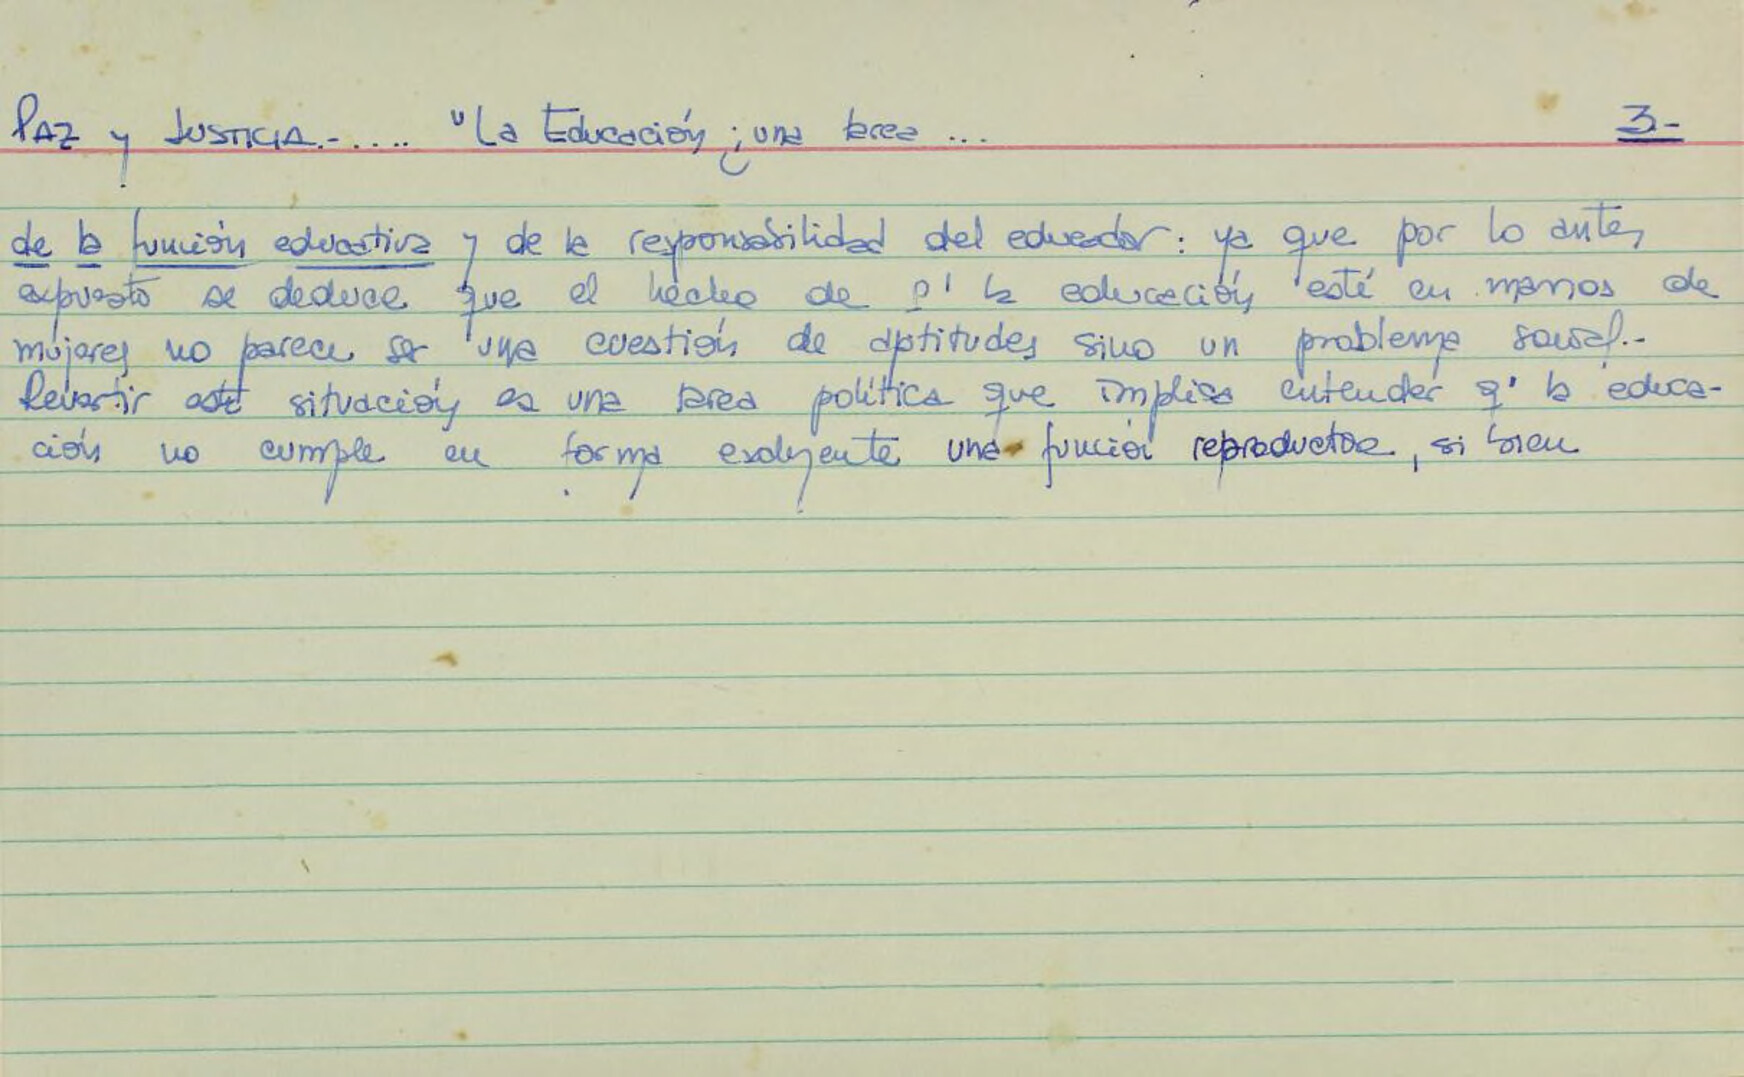 PAZ y JUSTICIA.-.... "La Educación ¿una tarea ... 3-
de la función educativa y de la responsabilidad del educador: ya que por lo antes
expuesto se deduce que el hecho de q' la educación esté en manos de
mujeres no parece ser una cuestión de aptitudes sino un problema social.-
Revertir esta situación es una tarea política que implica entender q' la educa-
ción no cumple en forma excluyente una función reproductora, si bien